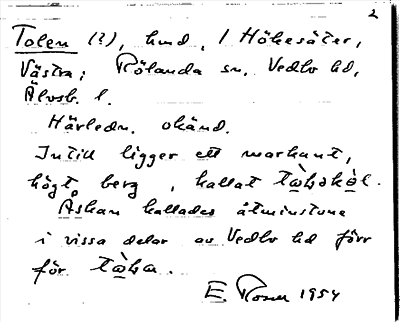 2
Tolen (?), hmd, i Hökesäter,
Västra; Rölanda sn, Vedbo hd,
Älvsb. l.
Härledn. okänd.
Intill ligger ett markant,
högt berg, kallat
Åskan kallades åtminstone
i vissa delar av Vedbo hd förr
för
E. Rosen 1954